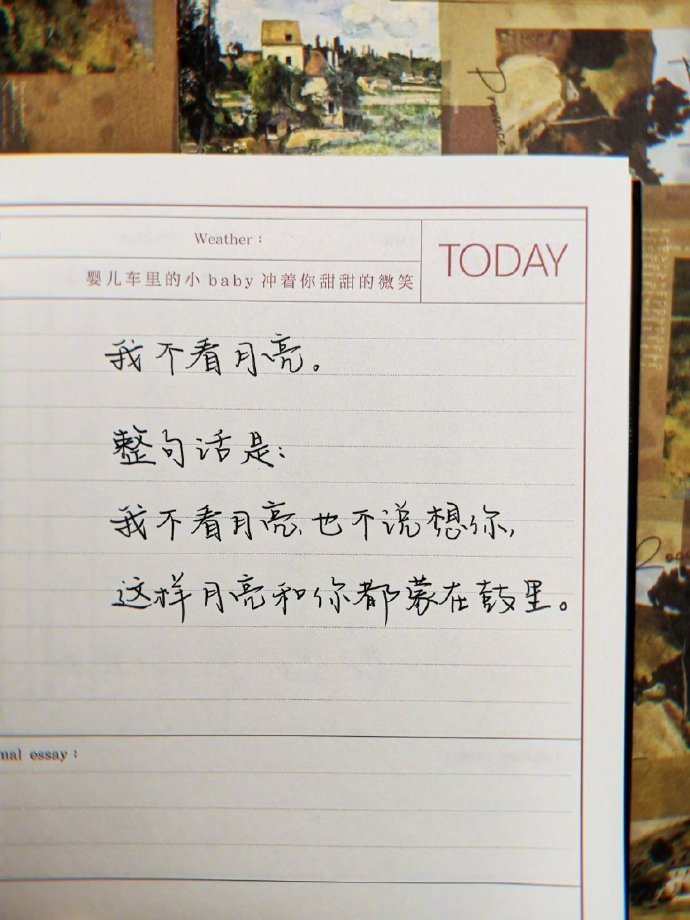 Provence
Weather:
TODAY
婴儿车里的小baby冲着你甜甜的微笑
我不看月亮。
整句话是:
我不看月亮、也不说想你,
这样月亮和你都蒙在鼓里。
nal essay: